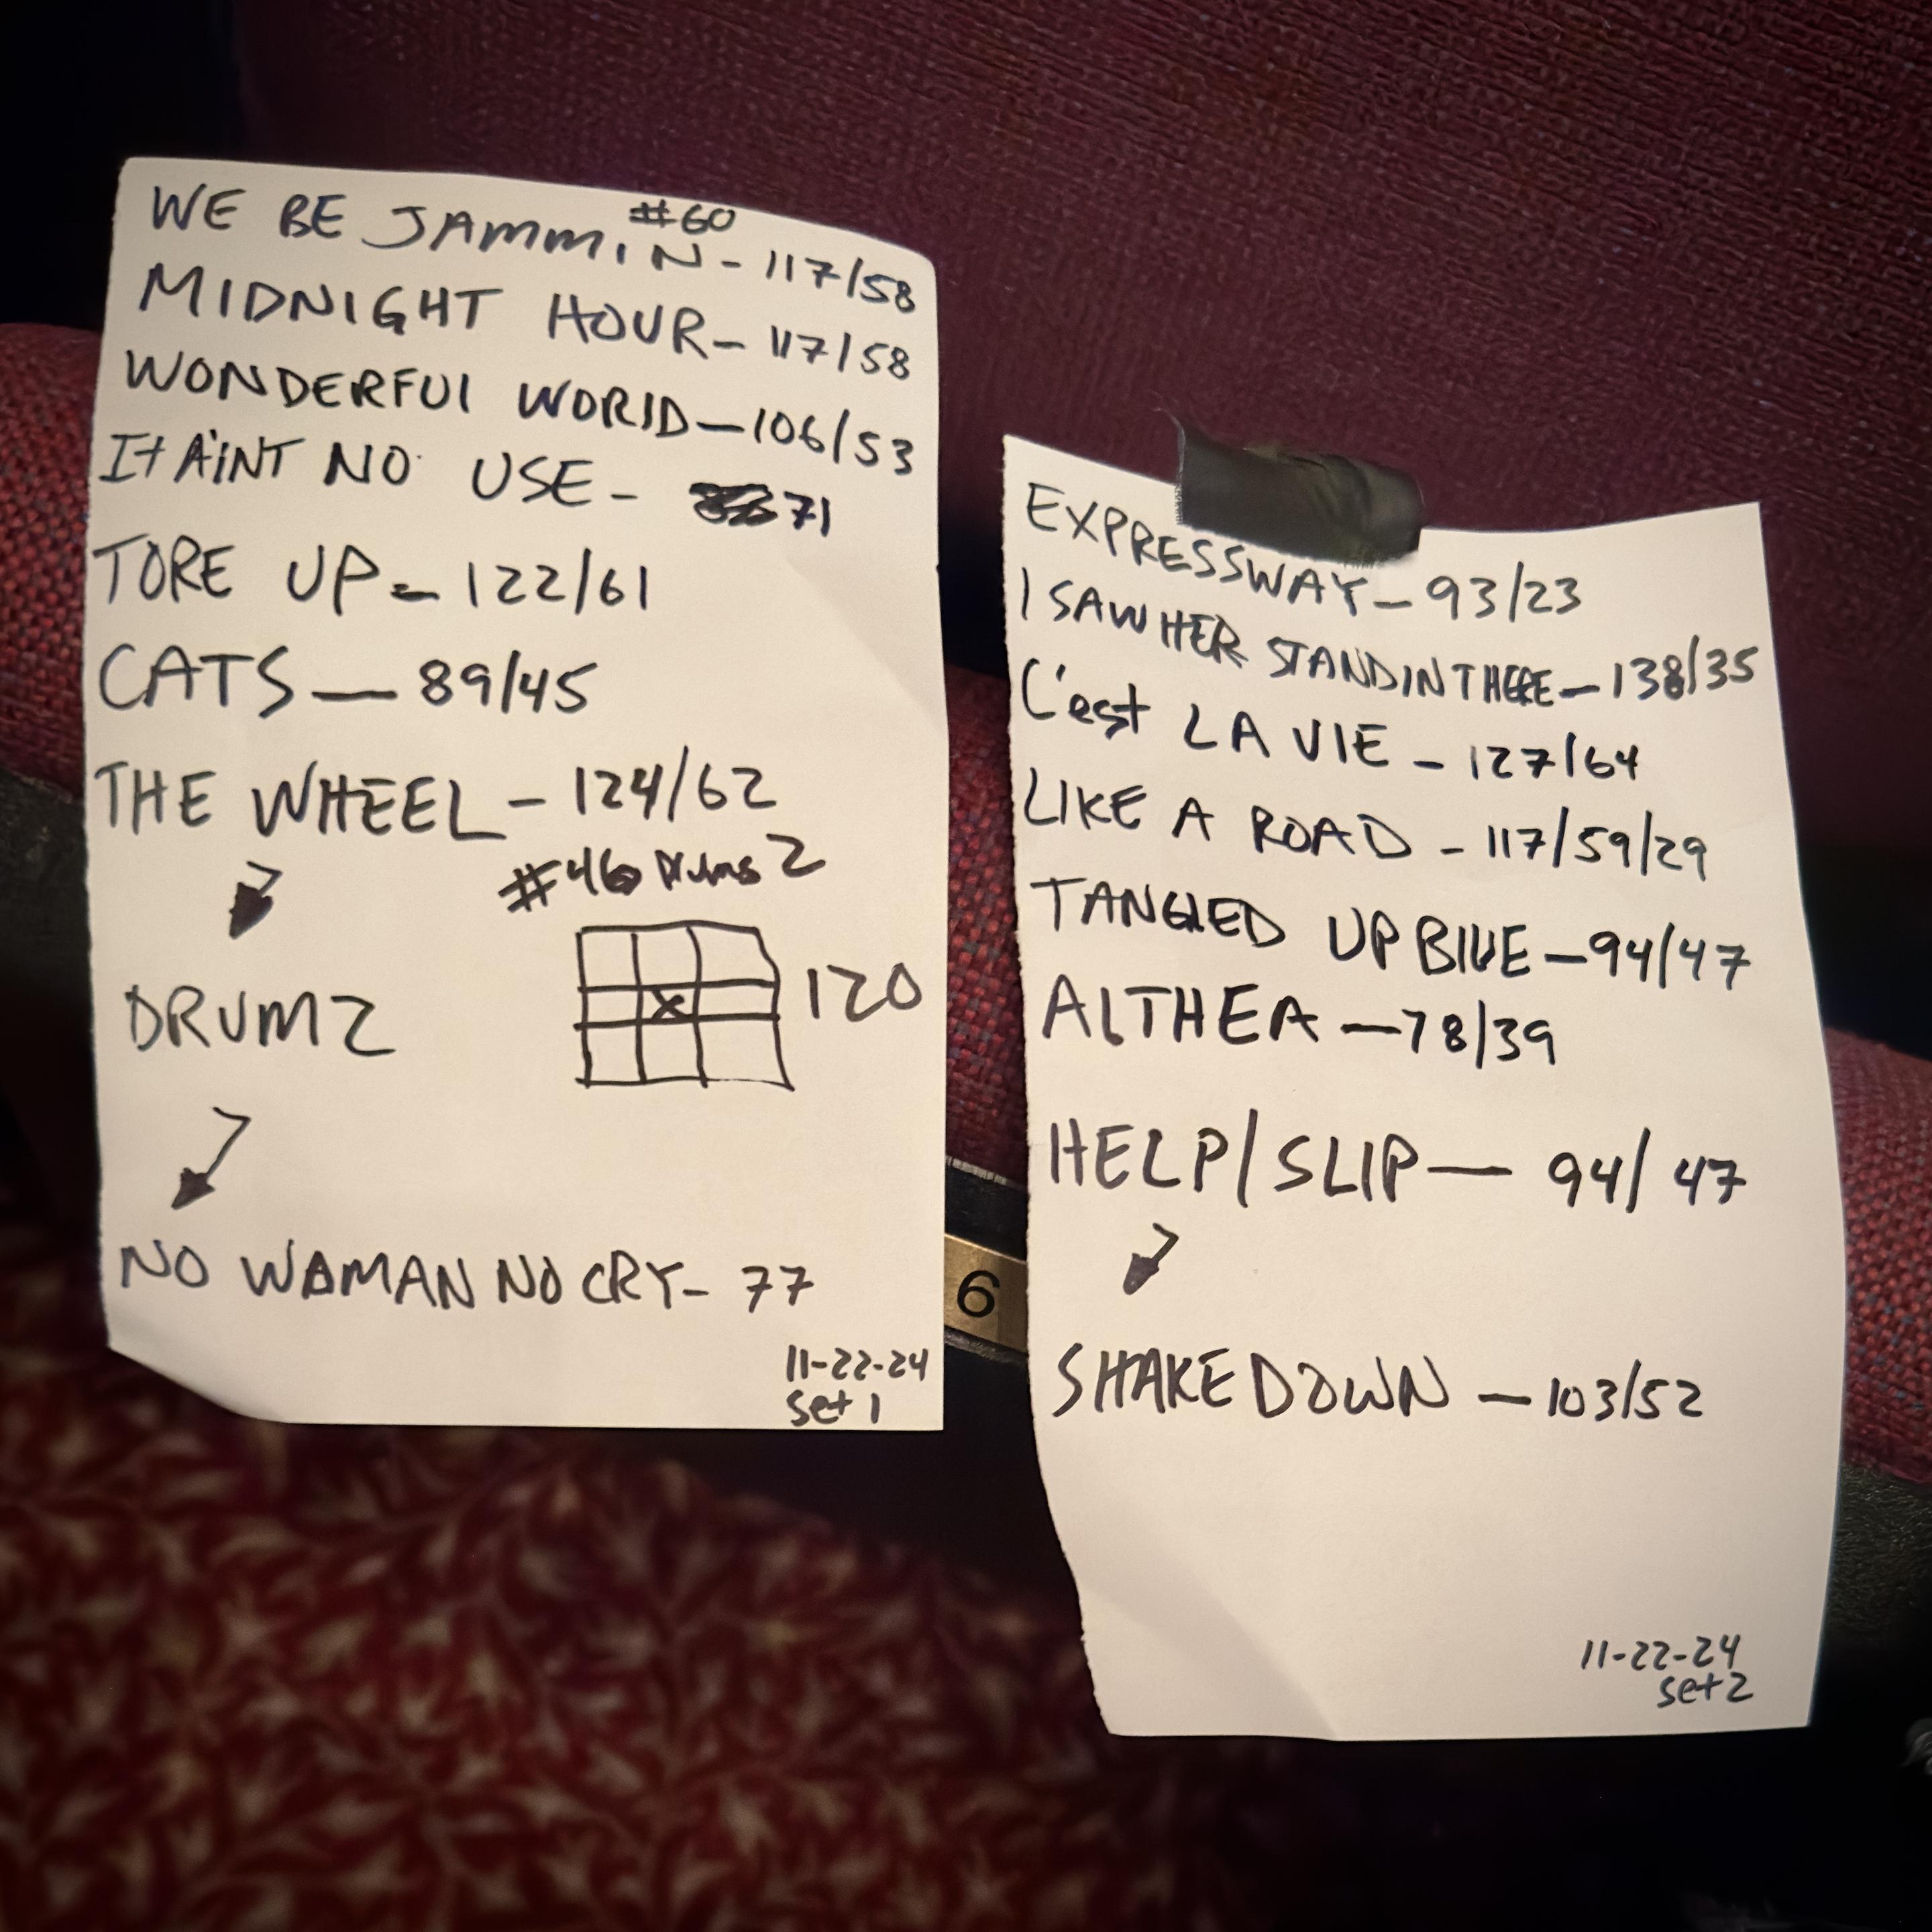 #60
WE BE JAMMIN - 117/58
MIDNIGHT HOUR - 117/58
WONDERFUL WORLD - 106/53
It AiNT NO USE - 71
TORE UP - 122/61
CATS - 89/45
THE WHEEL - 124/62
#46 Drums 2
DRUMZ
X
120
NO WOMAN NO CRY - 77
11-22-24
set 1
6
EXPRESSWAY - 93/23
I SAW HER STANDIN THERE - 138/35
C'est LA VIE - 127/64
LIKE A ROAD - 117/59/29
TANGLED UP BLUE - 94/47
ALTHEA - 78/39
HELP/SLIP - 94/47
SHAKEDOWN - 103/52
11-22-24
set 2